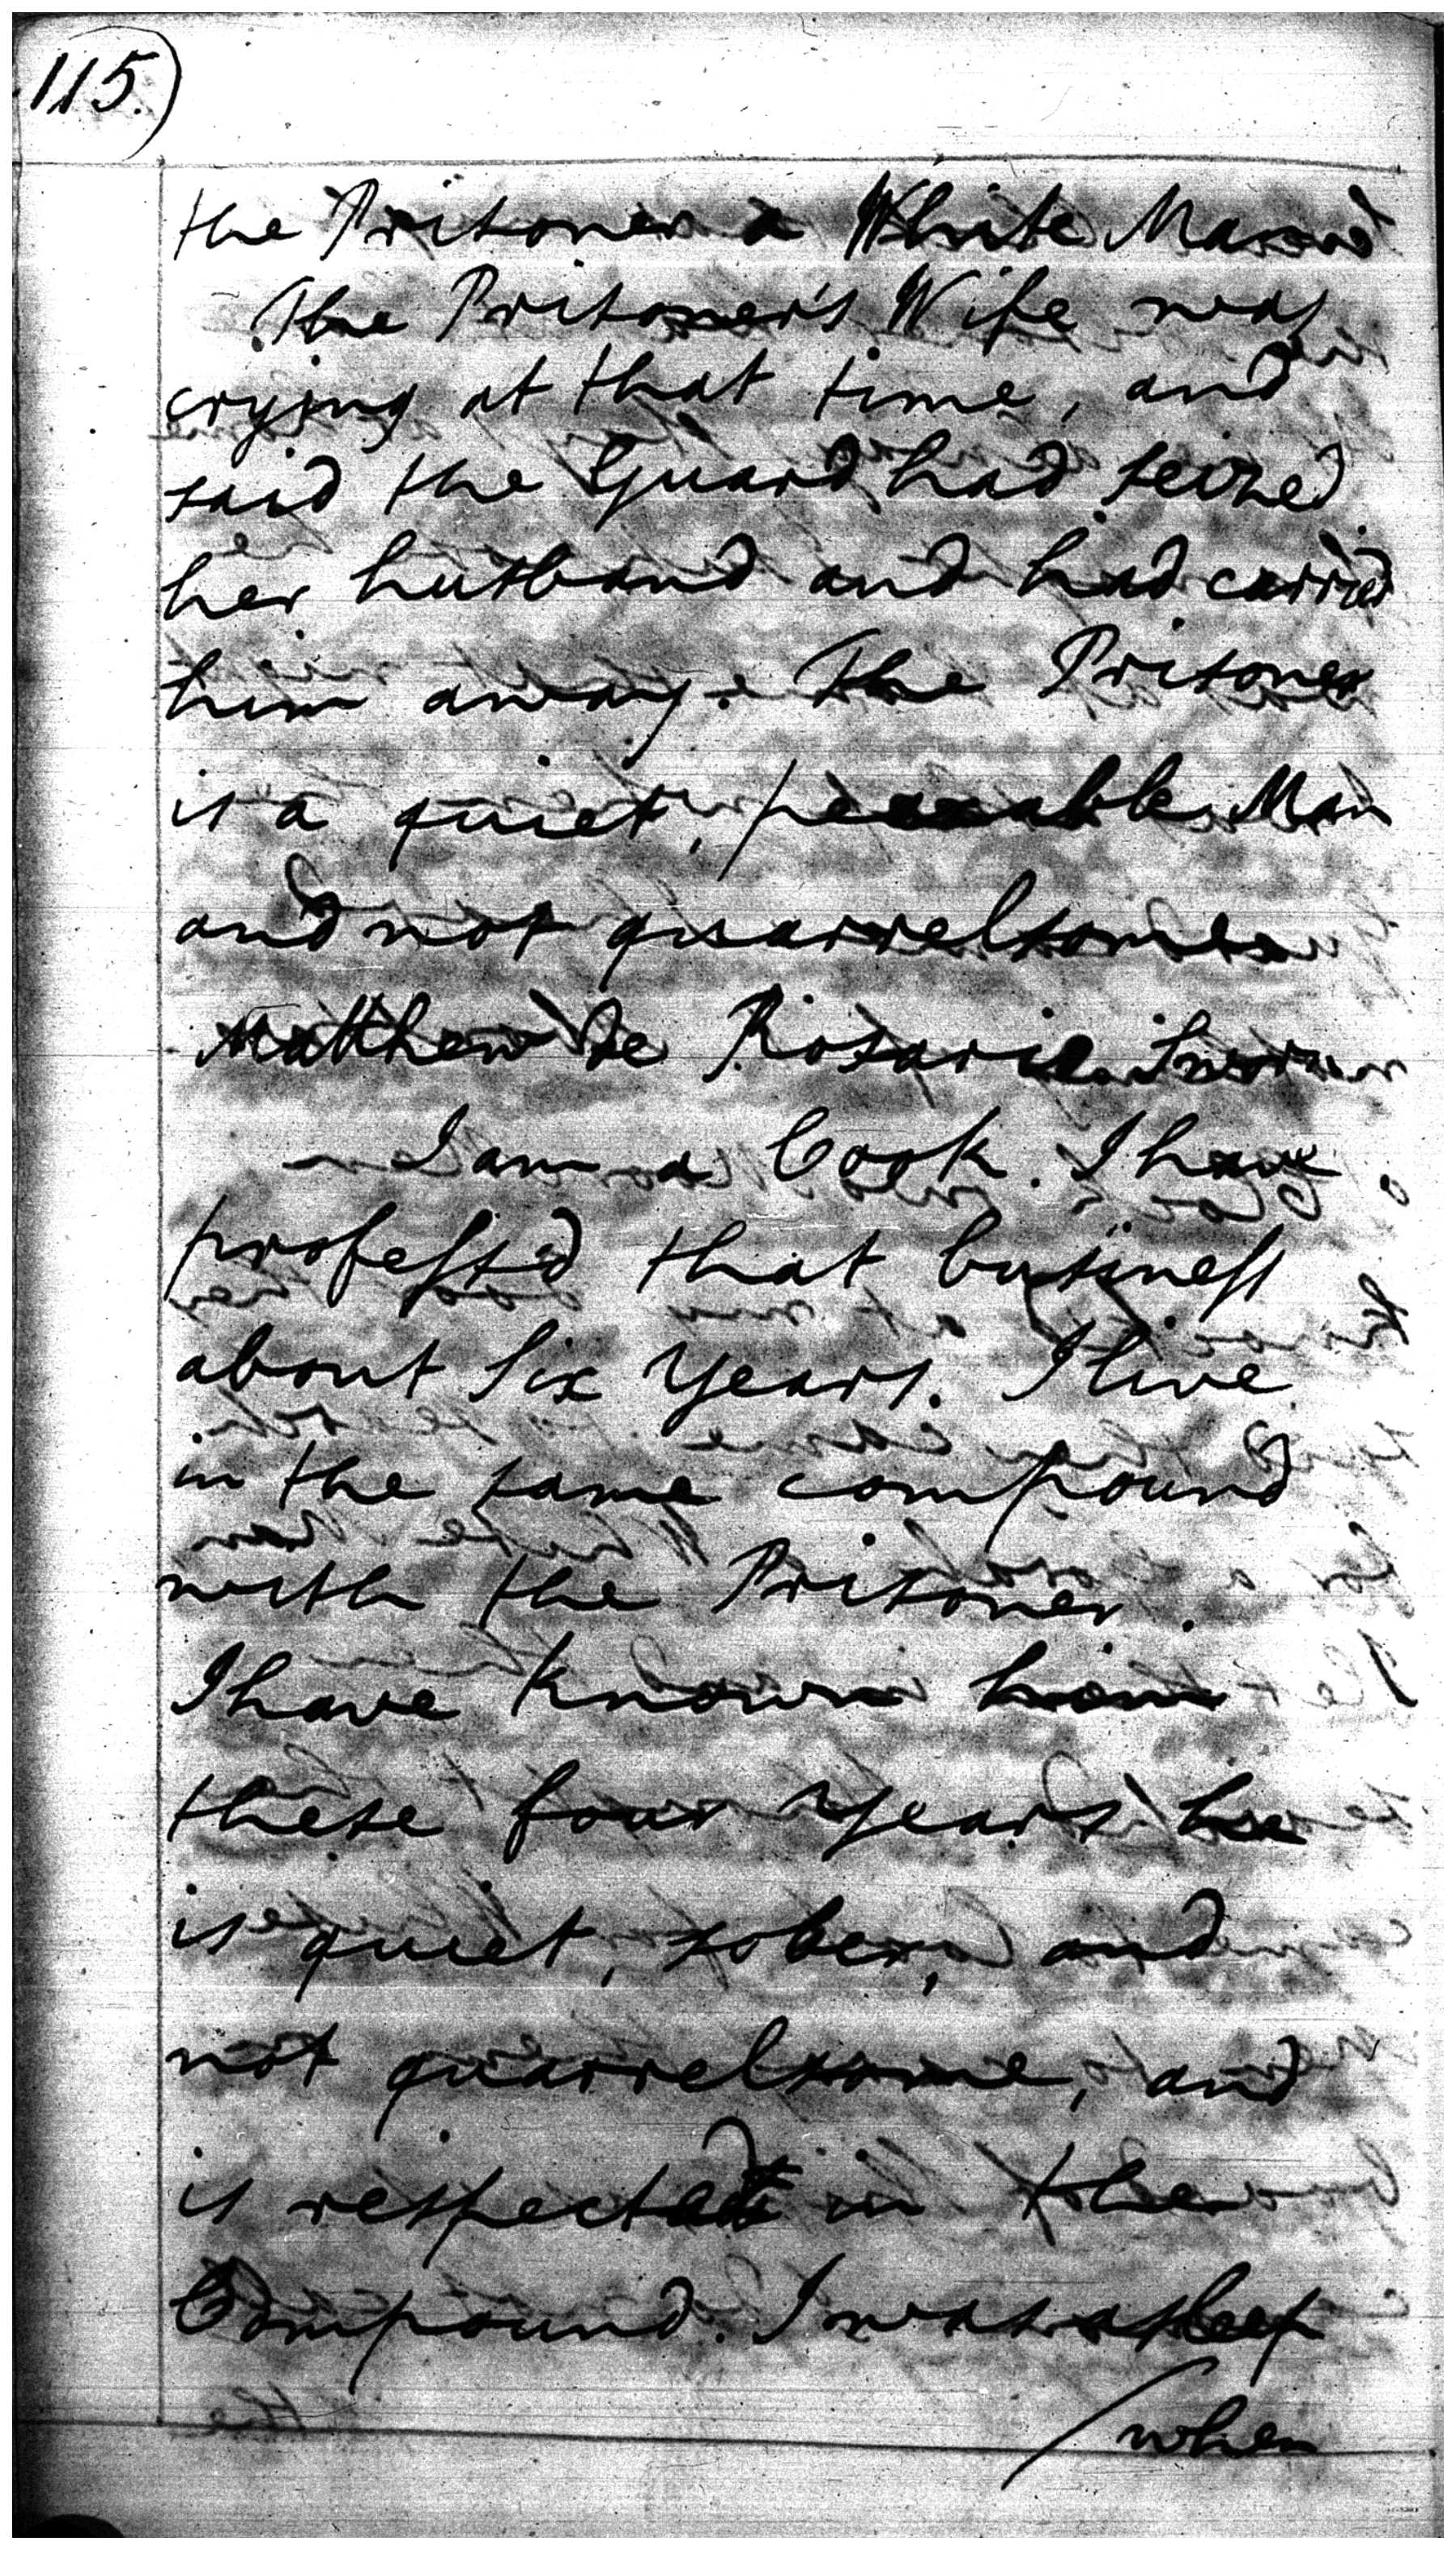 115.)
the Prisoner a White Man
The Prisoner's Wife was
crying at that time, and
said the Guard had seized
her husband and had carried
him away. The Prisoner
is a quiet, peaceable Man
and not quarrelsome
Matthew de Rosario Sworn
I am a Cook. I have
professed that business
about Six Years. I live
in the same compound
with the Prisoner.
I have known him
these four Years he
is quiet, sober, and
not quarrelsome, and
is respected in the
Compound. I was asleep
/ when